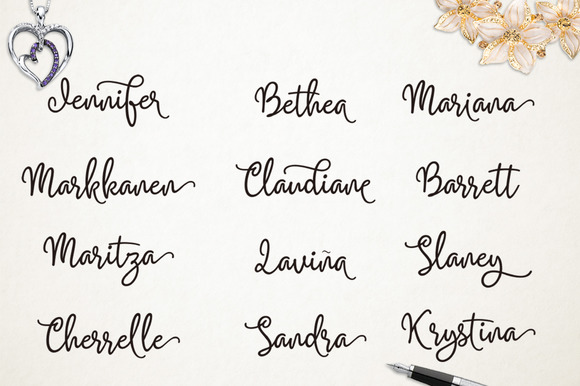 Jennifer Bethea Mariana
Markkanen Claudiane Barrett
Maritza Laviña Slaney
Cherrelle Sandra Krystina